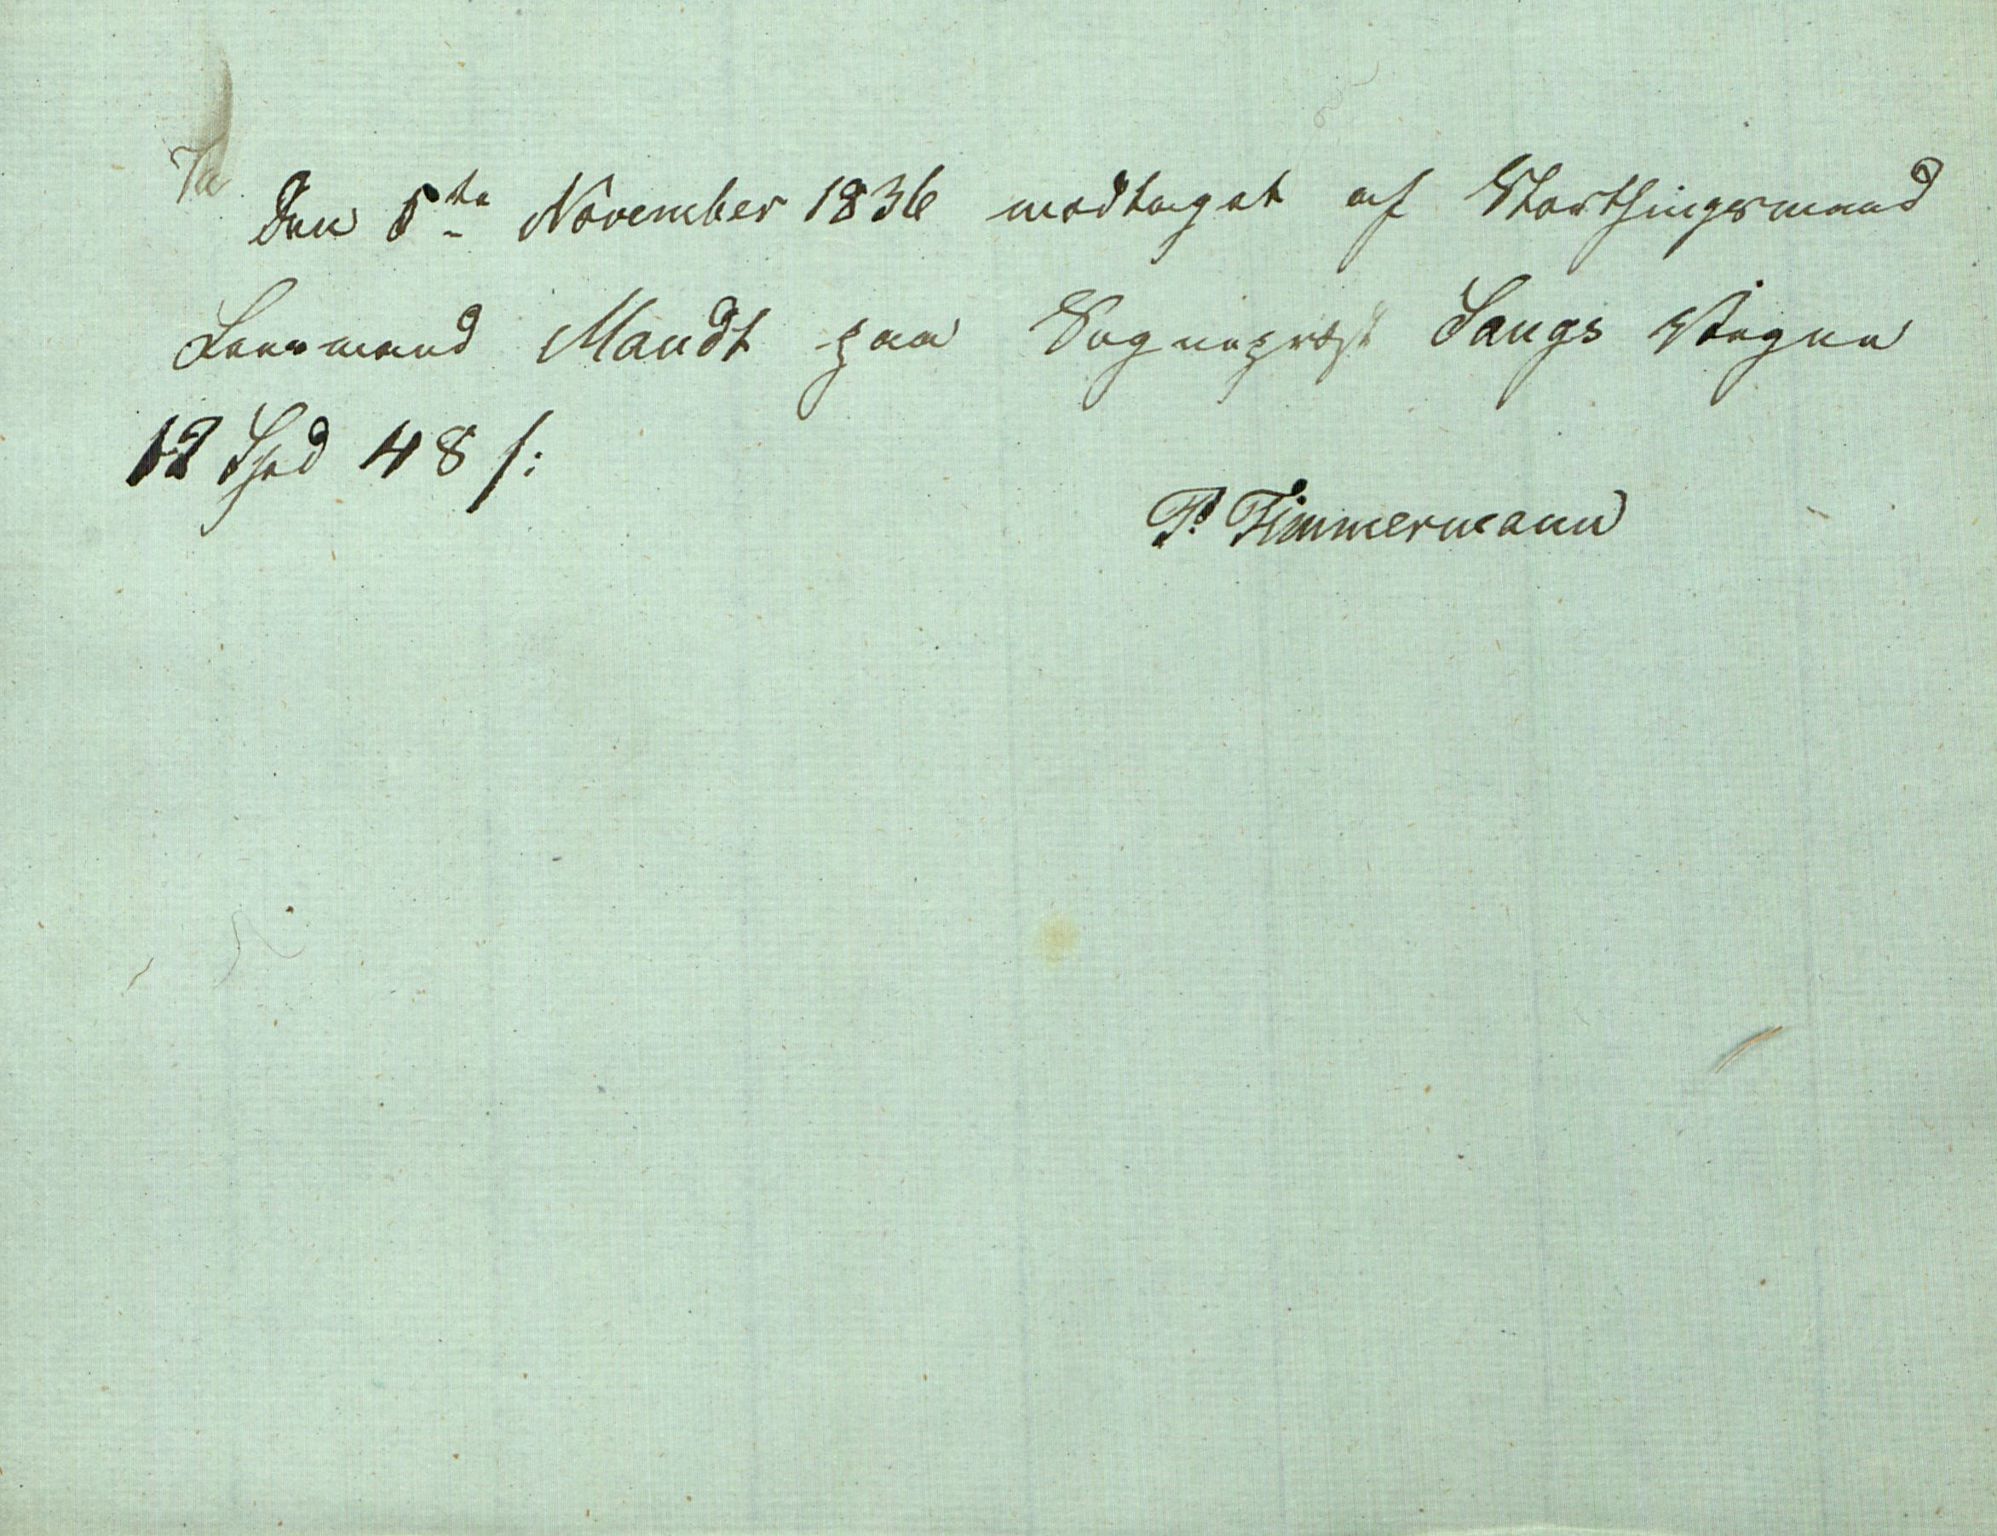 Den 5te November 1836 modtaget af Storthingsmand
Lensmand Mandt paa Sognepræst Langs Vegne
12 Spd 48 s:
P. Timmermann